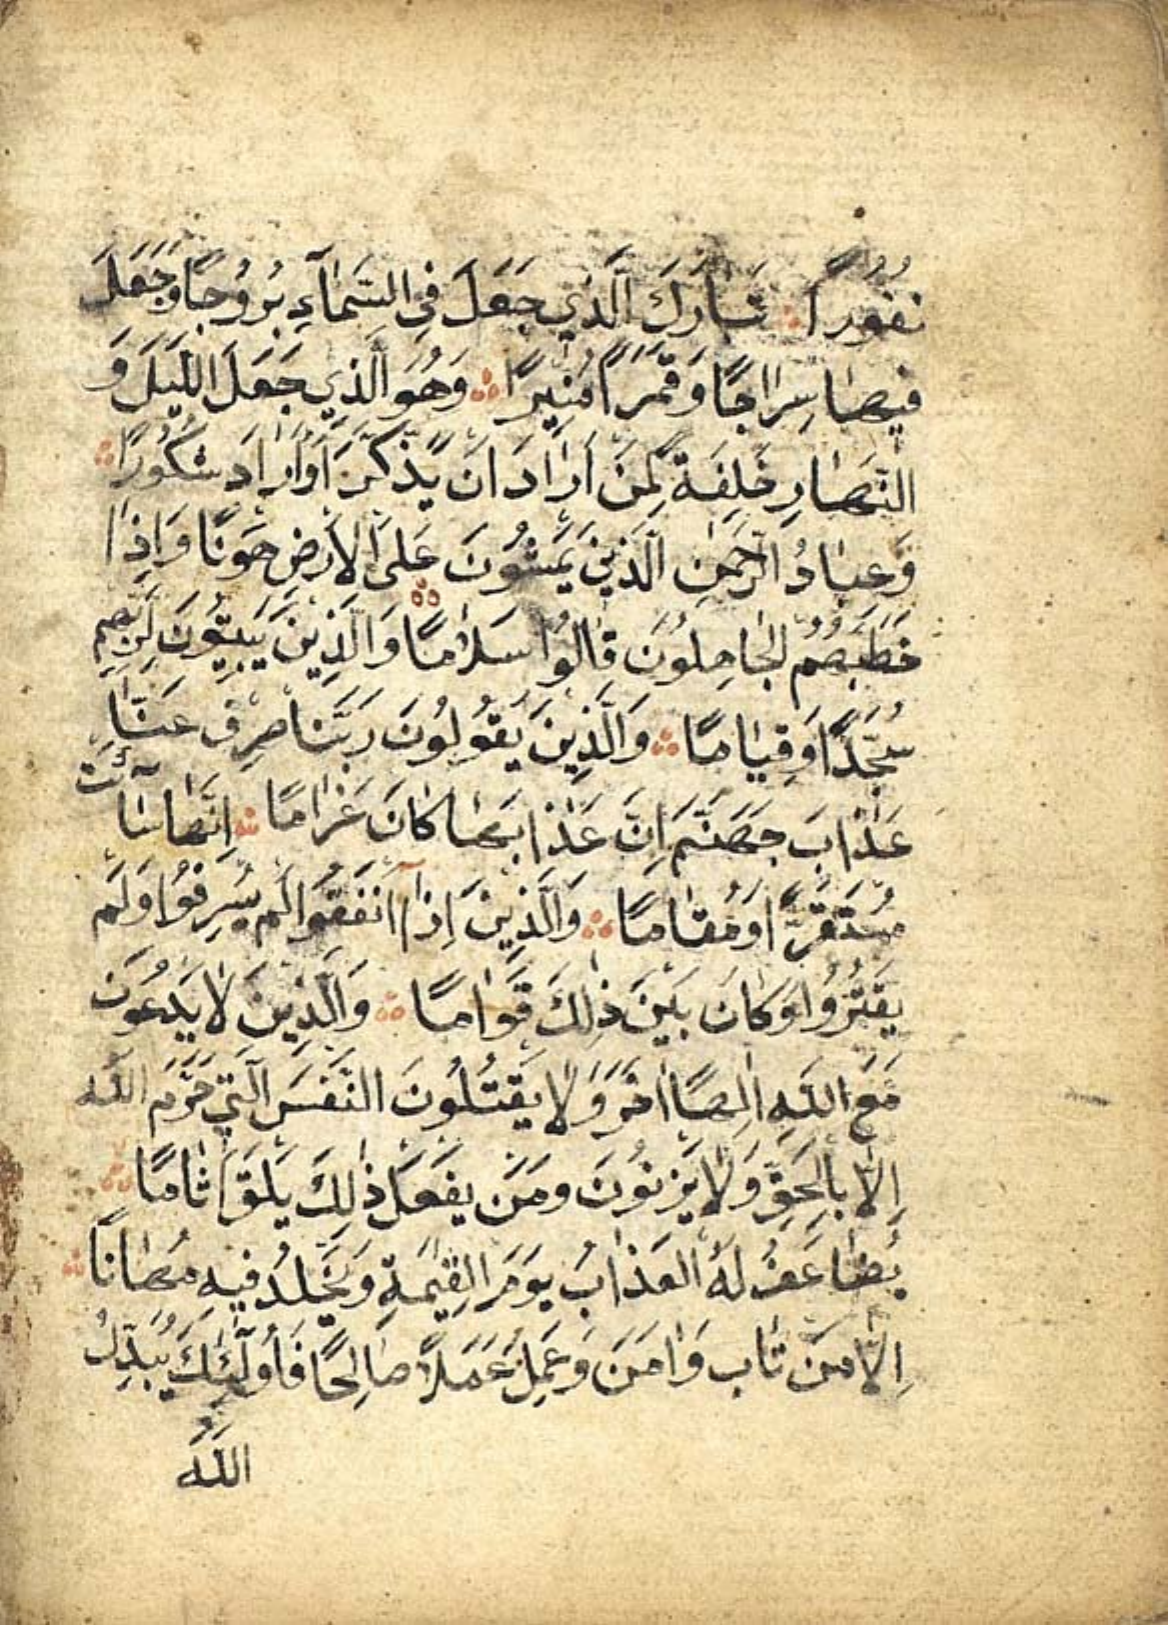 نُفُورًا تَبَارَكَ الَّذِي جَعَلَ فِي السَّمَآءِ بُرُوجًا وَجَعَلَ
فِيهَا سِرَاجًا وَقَمَرًا مُنِيرًا وَهُوَ الَّذِي جَعَلَ اللَّيْلَ وَ
النَّهَارَ خِلْفَةً لِمَنْ أَرَادَ أَنْ يَذَّكَّرَ أَوْ أَرَادَ شُكُورًا
وَعِبَادُ الرَّحْمٰنِ الَّذِينَ يَمْشُونَ عَلَى الْأَرْضِ هَوْنًا وَإِذَا
خَطَبَهُمُ الْجَاهِلُونَ قَالُوا سَلَامًا وَالَّذِينَ يَبِيتُونَ لِرَبِّهِمْ
سُجَّدًا وَقِيَامًا وَالَّذِينَ يَقُولُونَ رَبَّنَا صْرِفْ عَنَّا
عَذَابَ جَهَنَّمَ إِنَّ عَذَابَهَا كَانَ غَرَامًا إِنَّهَا سَآئَتْ
مُسْتَقَرًّا وَمُقَامًا وَالَّذِينَ إِذَآ أَنْفَقُوا لَمْ يُسْرِفُوا وَلَمْ
يَقْتُرُوا وَكَانَ بَيْنَ ذٰلِكَ قَوَامًا وَالَّذِينَ لَا يَدْعُونَ
مَعَ اللّٰهِ إِلٰهًا اٰخَرَ وَلَا يَقْتُلُونَ النَّفْسَ الَّتِي حَرَّمَ اللّٰهُ
إِلَّا بِالْحَقِّ وَلَا يَزْنُونَ وَمَنْ يَفْعَلْ ذٰلِكَ يَلْقَ أَثَامًا
يُضَاعَفْ لَهُ الْعَذَابُ يَوْمَ الْقِيٰمَةِ وَيَخْلُدْ فِيهِ مُهَانًا
إِلَّا مَنْ تَابَ وَاٰمَنَ وَعَمِلَ عَمَلًا صَالِحًا فَأُولٰٓئِكَ يُبَدِّلُ
اللّٰهُ